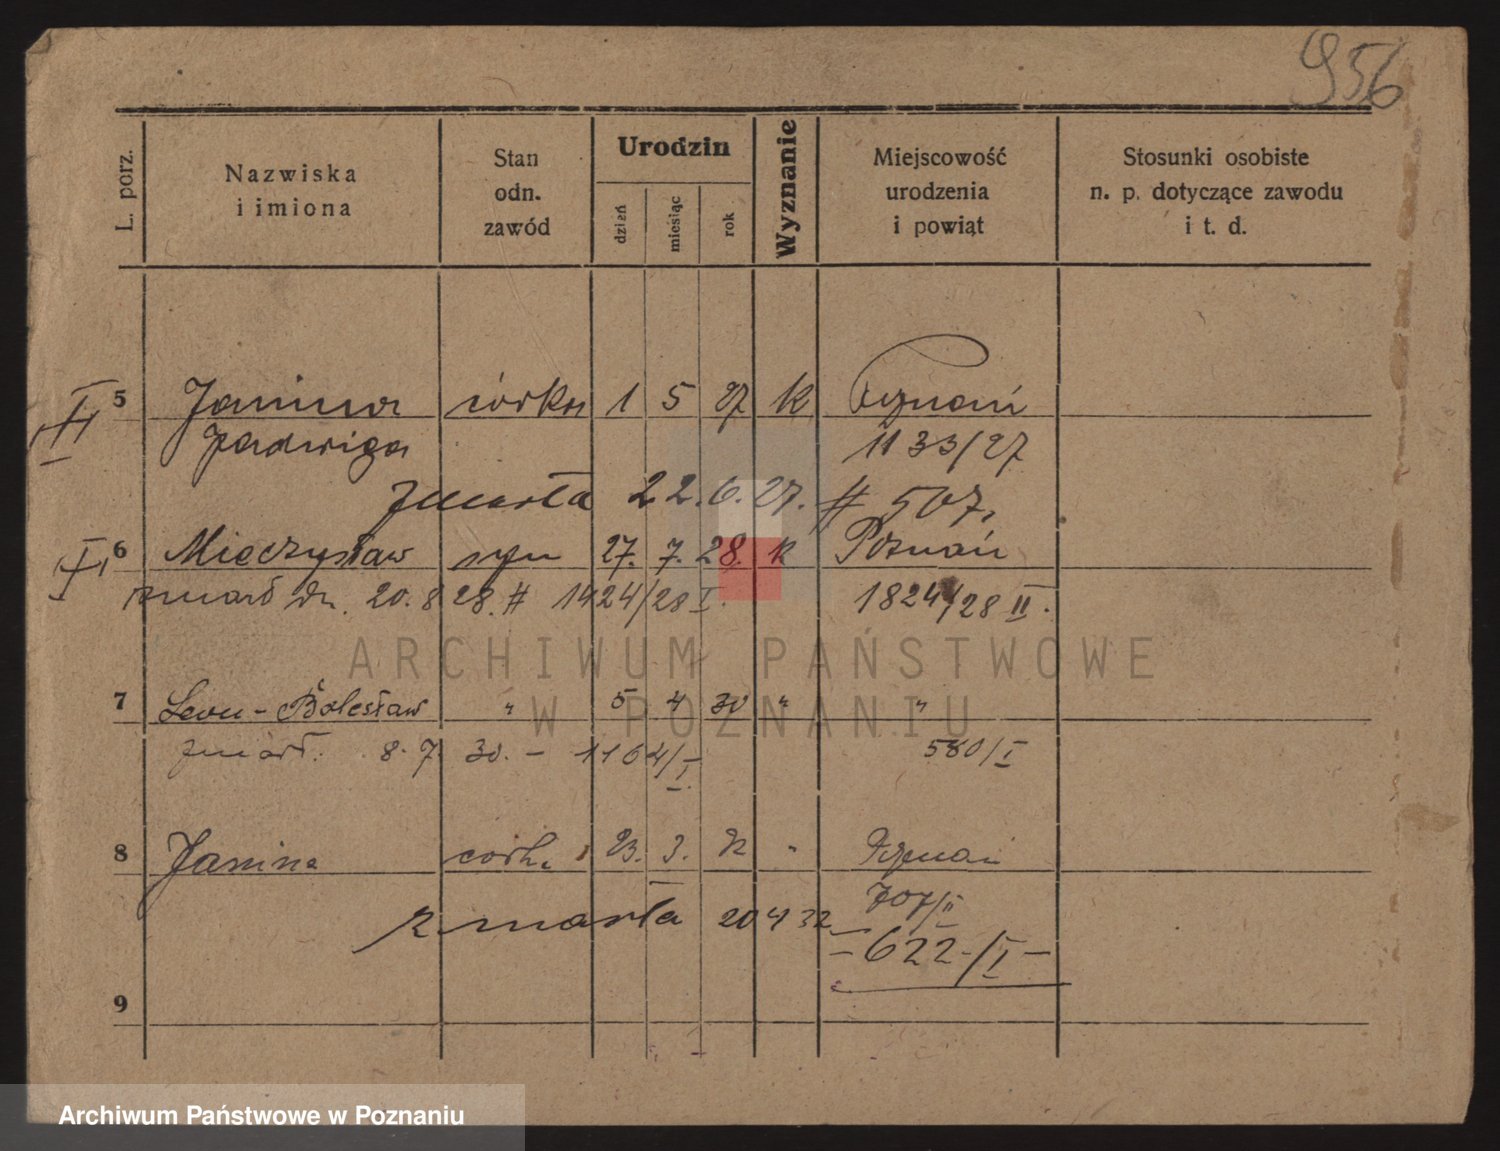 956
L. porz.
Nazwiska
i imiona
Stan
odn.
zawód
Urodzin
dzień
miesiąc
rok
Wyznanie
Miejscowość
urodzenia
i powiąt
Stosunki osobiste
n. p. dotyczące zawodu
i t. d.
5 Janina córka 1 5 27 k Poznań
Jadwiga 1133/27
zmarła 22.6.27. # 507.
6 Mieczysław syn 27. 7. 28. k Poznań
zmarł dn. 20.8 28. # 1424/28 I. 1824/28 II.
7 Leon - Bolesław " 5 4 30 " "
zmarł. 8. 7. 30. - 1164/I. 580/I
8 Janina córka 23. 3. 32 " Poznań
707/II
zmarła 20 4 32 - 622 - /I -
9
ARCHIWUM PAŃSTWOWE
W POZNANIU
Archiwum Państwowe w Poznaniu